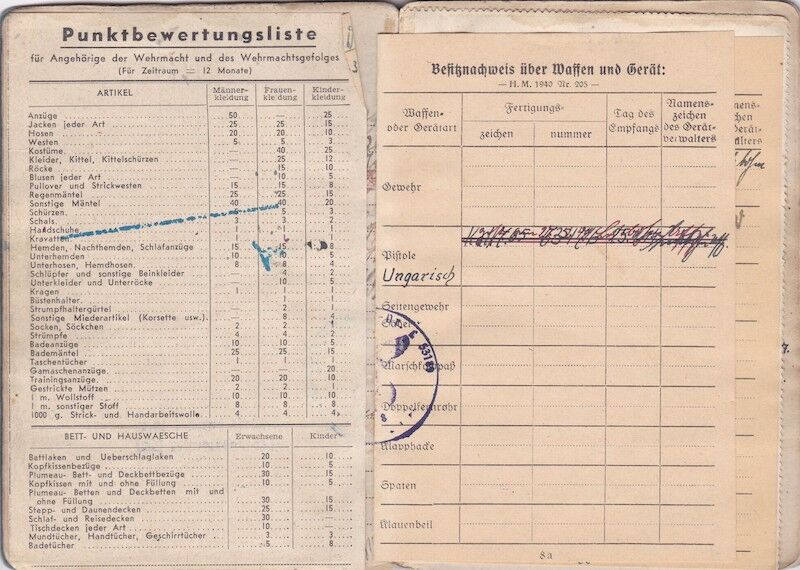 Punktbewertungsliste
für Angehörige der Wehrmacht und des Wehrmachtsgefolges
(Für Zeitraum = 12 Monate)
ARTIKEL Männer-kleidung Frauen-kleidung Kinder-kleidung
Anzüge 50 — 25
Jacken jeder Art 25 25 15
Hosen 20 20 10
Westen 5 5 3
Kostüme — 40 25
Kleider, Kittel, Kittelschürzen — 25 12
Röcke — 15 10
Blusen jeder Art — 10 5
Pullover und Strickwesten 15 15 8
Regenmäntel 25 25 15
Sonstige Mäntel 40 40 20
Schürzen — 5 3
Schals 3 2
Handschuhe
Kravatten 1
Hemden, Nachthemden, Schlafanzüge 15 15
Unterhemden 10 10 5
Unterhosen, Hemdhosen 8 8 4
Schlüpfer und sonstige Beinkleider — 4 2
Unterkleider und Unterröcke — 10 5
Kragen 1 1 1
Büstenhalter — 1
Strumpfhaltergürtel — 2 1
Sonstige Miederartikel (Korsette usw.) — 8 4
Socken, Söckchen 2 2 1
Strümpfe 4 4 2
Badeanzüge 10 10 5
Bademäntel 25 25 15
Taschentücher 1 1 1
Gamaschenanzüge — — 20
Trainingsanzüge 20 20 10
Gestrickte Mützen 2 2 1
1 m. Wollstoff 10 10 10
1 m. sonstiger Stoff 8 8 8
1000 g. Strick- und Handarbeitswolle 4 4 4
BETT- UND HAUSWAESCHE Erwachsene Kinder
Bettlaken und Ueberschlaglaken 20 10
Kopfkissenbezüge 10 5
Plumeau- Bett- und Deckbettbezüge 30 15
Kopfkissen mit und ohne Füllung 10 5
Plumeau- Betten und Deckbetten mit und
ohne Füllung 30 15
Stepp- und Daunendecken 25 15
Schlaf- und Reisedecken 30
Tischdecken jeder Art 10 —
Mundtücher, Handtücher, Geschirrtücher 3 3
Badetücher 5 8
Besitznachweis über Waffen und Gerät:
— H. M. 1940 Nr. 205 —
Waffen- oder Gerätart
Fertigungs-
zeichen nummer
Tag des Empfangs
Namens-zeichen des Gerät-verwalters
Gewehr
Pistole
Ungarisch
Seitengewehr
Marschkompaß
Doppelfernrohr
Klapphacke
Spaten
Klauenbeil
53189
8a